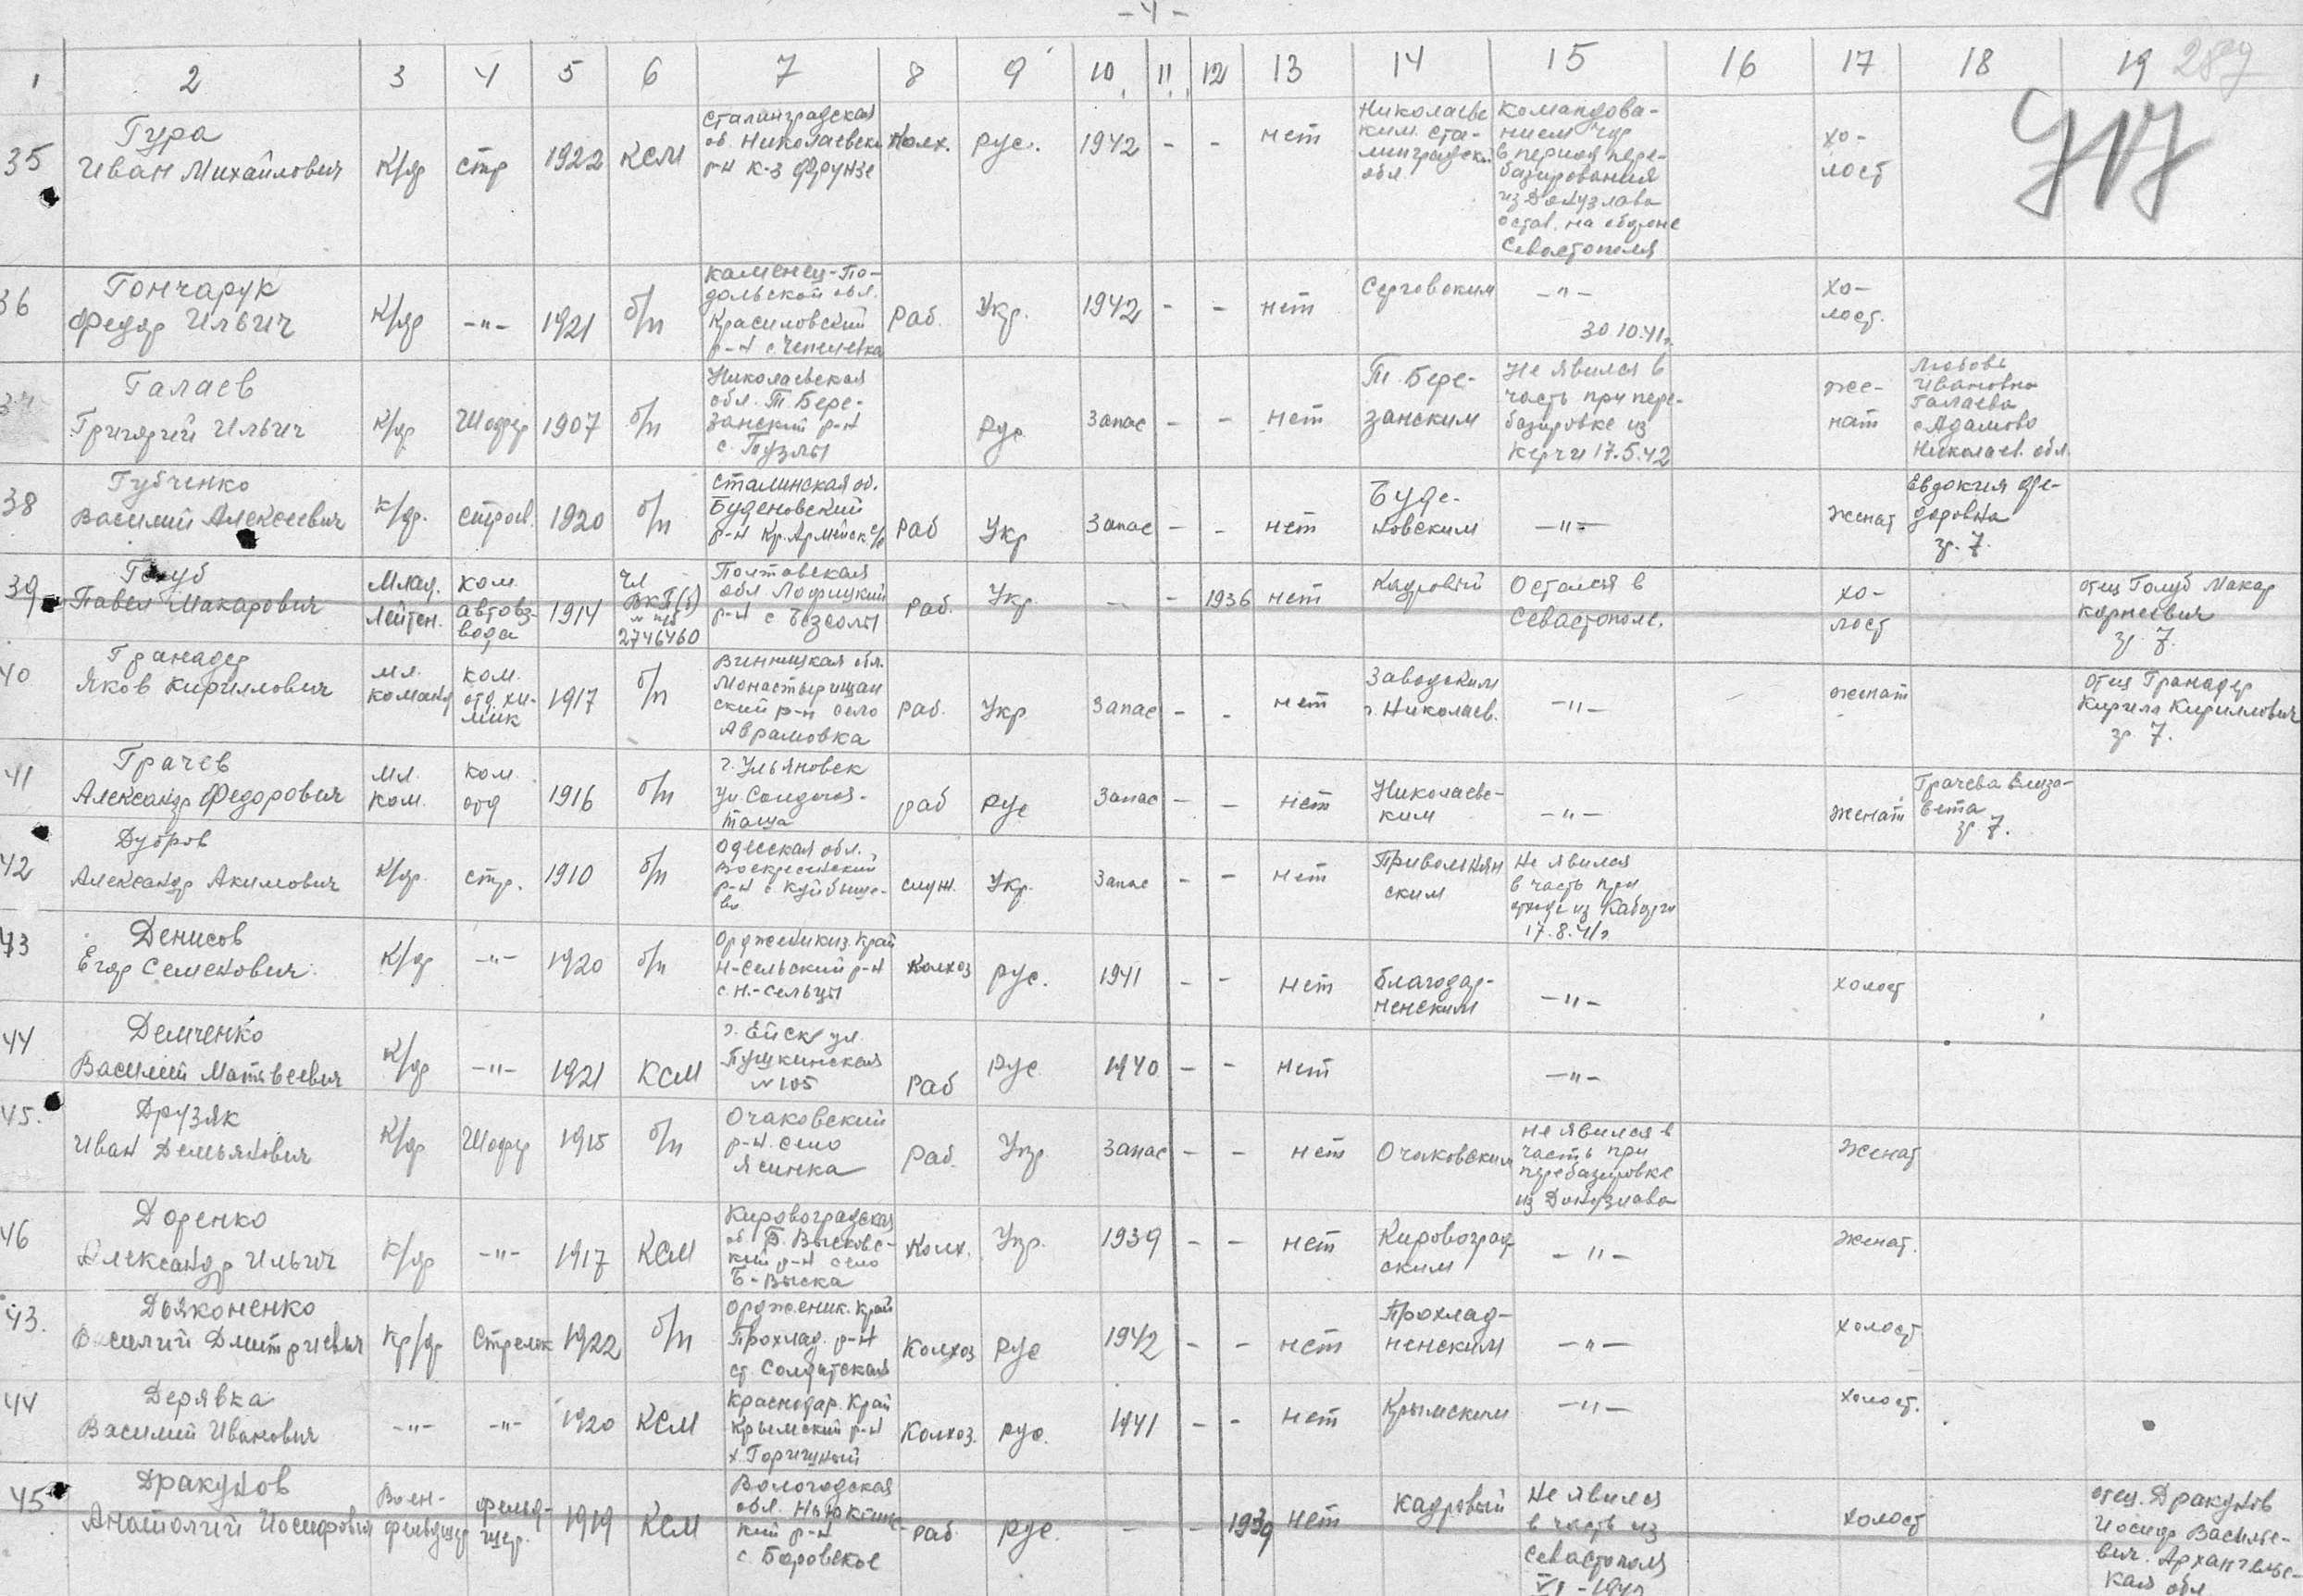 - 4 -
289
1 2 3 4 5 6 7 8 9 10 11 12 13 14 15 16 17 18 19
35 Гура
Иван Михайлович К/др стр 1922 КСМ
Сталинградская
об. Николаевски
р-н к-з Фрунзе
Колх. рус. 1942 - - нет
Николаевс
ким. ста-
линградск.
обл.
Командова-
нием
в период пере-
базирования
из Донузлава
остав. на обороне
Севастополя
хо-
лост
36 Гончарук
Федор Ильич К/др -"- 1921 б/п
Каменец-По-
дольской обл.
Красиловский
р-н с. Чепелевка
Раб. Укр. 1942 - - нет Серговским
-"-
30 10.41г.
хо-
лост.
37 Галаев
Григорий Ильич К/др Шофер 1907 б/п
Николаевская
обл. Т. Бере-
занский р-н
с. Тузлы
рус Запас - - нет
Т. Бере-
занским
Не явился в
часть при пере-
базировке из
Керчи 17.5.42
же-
нат
Любовь
Ивановна
Галаева
с Адамово
Николаев. обл.
38 Губченко
Василий Алексеевич К/др. строев. 1920 б/п
Сталинская об.
Буденовский
р-н Кр. Армейск с/с
Раб Укр Запас - - нет
Буде-
новским
-"-
женат
Евдокия Фе-
доровна
гр. 7.
39 Голуб
Павел Макарович
Млад.
Лейтен.
ком.
автовз-
вода
1914
чл
ВКП(б)
2746460
Полтавская
обл Лохвицкий
р-н с Безсалы
Раб. Укр - - 1936 нет Кадровый
Остался в
Севастополе.
хо-
лост
отец Голуб Макар
Корнеевич
гр. 7.
40 Гранадер
Яков Кириллович
мл.
команд
ком.
отд. хи-
мик
1917 б/п
Винницкая обл.
Монастырищан
ский р-н село
Аврамовка
раб. Укр Запас - - нет
Заводским
г. Николаев.
-"-
женат
отец Гранадер
Кирилл Кириллович
гр 7.
41 Грачев
Александр Федорович
мл.
ком.
ком.
отд
1916 б/п
г. Ульяновск
ул
раб Рус Запас - - нет
Николаевс-
ким
-"-
женат
Грачева Елиза-
вета
гр 7.
42 Дубров
Александр Акимович К/др. стр. 1910 б/п
Одесская обл.
Воскресенский
р-н с Куйбыше-
во
служ. Укр. Запас - - нет
Привольнян
ским
Не явился
в часть при
отходе из
17.8.41г.
43 Денисов
Егор Семенович К/др -"- 1920 б/п
Орджоникиз. Край
Н-Сельский р-н
с. Н.-Сельцы
Колхоз рус. 1941 - - нет
Благодар-
ненским
-"-
холост
44 Демченко
Василий Матвеевич К/др -"- 1921 КСМ
г. Ейск ул
Пушкинская
№ 105
Раб Рус 1940 - - нет
-"-
45. Друзяк
Иван Демьянович К/др Шофер 1915 б/п
Очаковский
р-н. село
Ясинка
Раб. Укр Запас - - нет Очаковским
не явился в
часть при
перебазировке
из Донузлава
женат
46 Доренко
Александр Ильич К/др -"- 1917 КСМ
Кировоградская
об Б. Высковс-
кий р-н село
Б-Выска
Колх. Укр. 1939 - - нет
Кировоград-
ским
-"-
женат.
43. Дьяконенко
Василий Дмитриевич Кр/др Стрелок 1922 б/п
Орджоник. Край
Прохлад. р-н
ст Солдатская
Колхоз рус 1942 - - нет
Прохлад-
ненским
-"-
холост
44 Дерявка
Василий Иванович -"- -"- 1920 КСМ
Краснодар. Край
Крымский р-н
х. Горищный
Колхоз. рус. 1941 - - нет Крымским
-"-
холост.
45 Дракунов
Анатолий Иосифович
Воен-
фельдшер
фельд-
шер.
1919 КСМ
Вологодская
обл.
кий р-н
с. Боровское
раб рус. - - 1939 нет кадровый
Не явился
в часть из
Севастополя
VI - 1942
холост
отец. Дракунов
Иосиф Василье-
вич. Архангельс-
кая обл